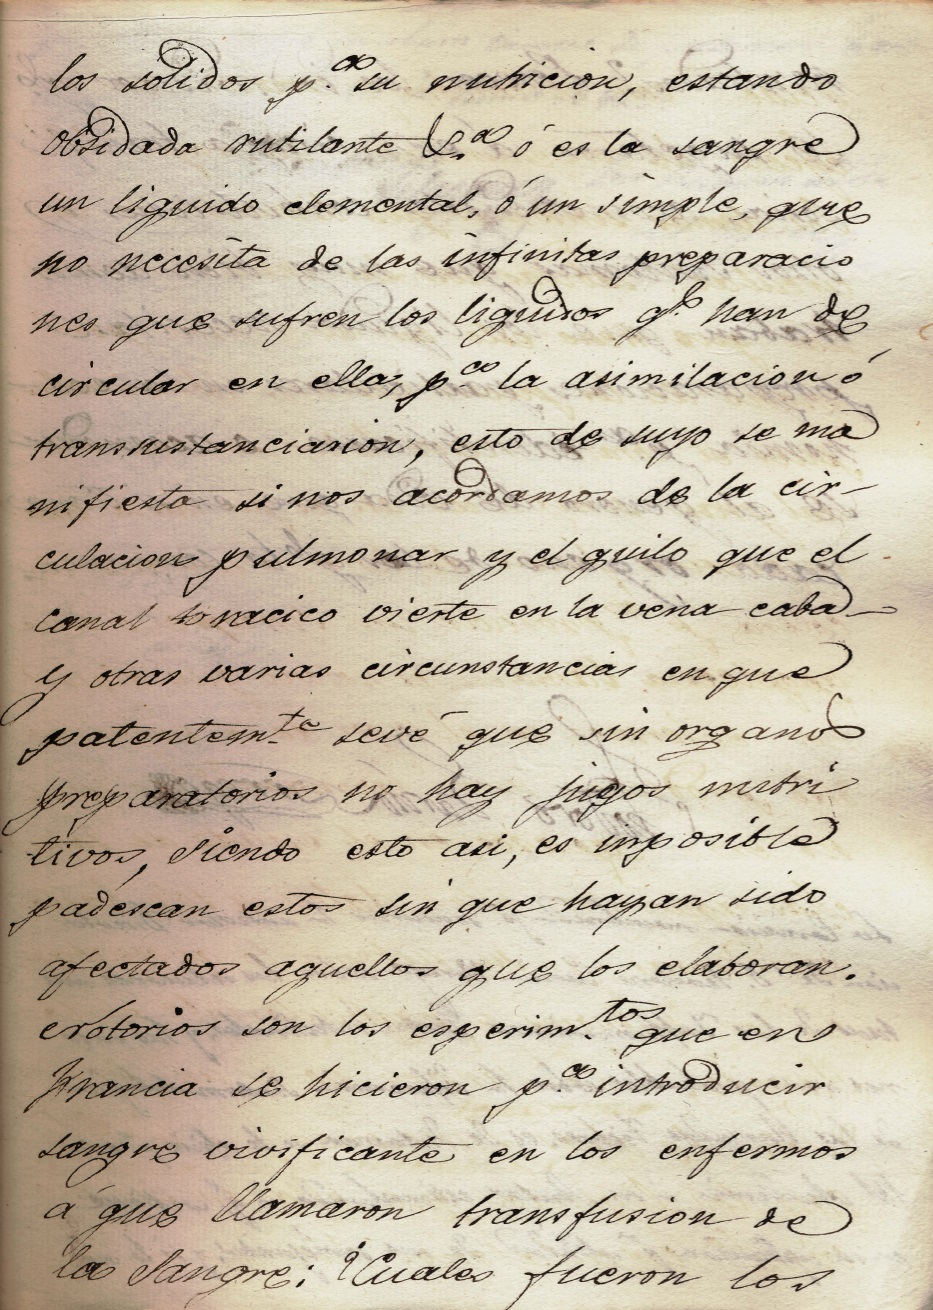 los sólidos p.ª su nutricion, estando
obsidada rutilante &.ª ó es la sangre
un liguido elemental, ó un simple, que
no necesita de las infinitas preparacio
nes que sufren los liguidos q.e han de
circular en ella, p.ª la asimilacion ó
transustanciacion, esto de suyo se ma
nifiesta si nos acordamos de la cir-
culacion pulmonar y el guilo que el
canal toracico vierte en la vena caba
y otras varias circunstancias en que
patentem.te sevé que sin organos
preparatorios no hay jugos nutri
tivos, siendo esto asi, es imposible
padescan estos sin que hayan sido
afectados aquellos que los elaboran.
 son los esperim.tos que en
Francia se hicieron p.ª introducir
sangre vivificante en los enfermos
á que llamaron transfusion de
la Sangre; ¿Cuales fueron los